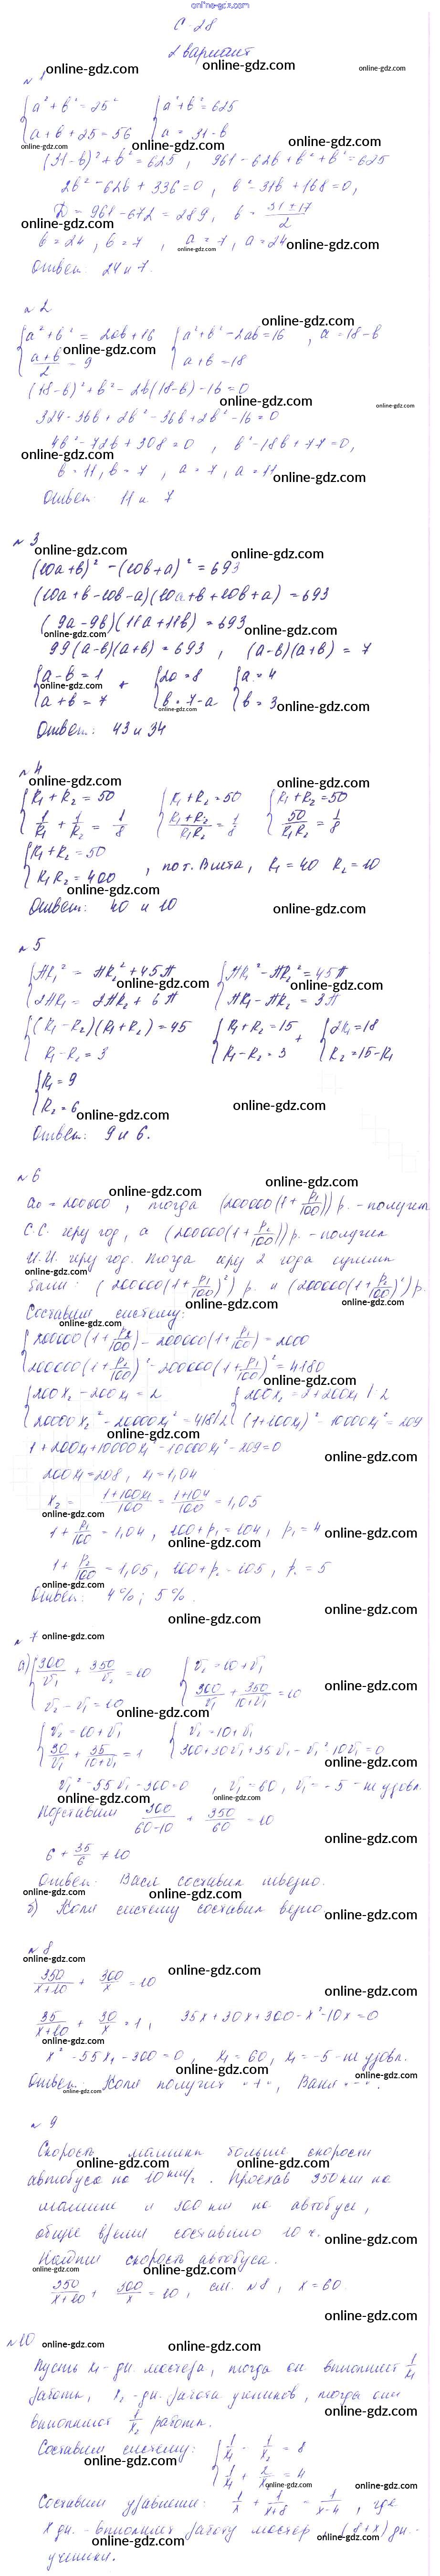 online-gdz.com
С-28
2 вариант
№1
{a² + b² = 25² {a² + b² = 625
{a + b + 25 = 56 {a = 31 - b
(31-b)² + b² = 625, 961 - 62b + b² + b² = 625
2b² - 62b + 336 = 0, b² - 31b + 168 = 0,
D = 961 - 672 = 289, b = (31 ± 17)/2
b = 24, b = 7, a = 7, a = 24
Ответ: 24 и 7.
№2
{a² + b² = 2ab + 16 {a² + b² - 2ab = 16, a = 18 - b
{(a+b)/2 = 9 {a + b = 18
(18-b)² + b² - 2b(18-b) - 16 = 0
324 - 36b + 2b² - 36b + 2b² - 16 = 0
4b² - 72b + 308 = 0, b² - 18b + 77 = 0,
b = 11, b = 7, a = 7, a = 11
Ответ: 11 и 7
№3
(10a+b)² - (10b+a)² = 693
(10a+b-10b-a)(10a+b+10b+a) = 693
(9a-9b)(11a+11b) = 693
99(a-b)(a+b) = 693, (a-b)(a+b) = 7
{a - b = 1 + {2a = 8 {a = 4
{a + b = 7 {b = 7 - a {b = 3
Ответ: 43 и 34
№4
{R₁ + R₂ = 50 {R₁ + R₂ = 50 {R₁ + R₂ = 50
{1/R₁ + 1/R₂ = 1/8 {(R₁+R₂)/(R₁R₂) = 1/8 {50/(R₁R₂) = 1/8
{R₁ + R₂ = 50
{R₁R₂ = 400, по т. Виета, R₁ = 40 R₂ = 10
Ответ: 40 и 10
№5
{πR₁² = πR₂² + 45π {πR₁² - πR₂² = 45π
{2πR₁ = 2πR₂ + 6π {πR₁ - πR₂ = 3π
{(R₁-R₂)(R₁+R₂) = 45 {R₁ + R₂ = 15 + {2R₁ = 18
{R₁ - R₂ = 3 {R₁ - R₂ = 3 {R₂ = 15 - R₁
{R₁ = 9
{R₂ = 6
Ответ: 9 и 6.
№6
a₀ = 200000, тогда (200000(1 + p₁/100)) р. - получит
С.С. через год, а (200000(1 + p₂/100)) р. - получит
И.И. через год. Тогда через 2 года суммы
были: (200000(1 + p₁/100)²) р. и (200000(1 + p₂/100)²) р.
Составим систему:
{200000(1 + p₂/100) - 200000(1 + p₁/100) = 2000
{200000(1 + p₂/100)² - 200000(1 + p₁/100)² = 4180
{200x₂ - 200x₁ = 2 {200x₂ = 2 + 200x₁ |:2
{20000x₂² - 20000x₁² = 418 |:2 {(1+100x₁)² - 10000x₁² = 209
1 + 200x₁ + 10000x₁² - 10000x₁² - 209 = 0
200x₁ = 208, x₁ = 1,04
x₂ = (1+100x₁)/100 = (1+104)/100 = 1,05
1 + p₁/100 = 1,04, 100 + p₁ = 104, p₁ = 4
1 + p₂/100 = 1,05, 100 + p₂ = 105, p₂ = 5
Ответ: 4%; 5%.
№7
а) {300/v₁ + 350/v₂ = 10 {v₂ = 10 + v₁
{v₂ - v₁ = 10 {300/v₁ + 350/(10+v₁) = 10
{v₂ = 10 + v₁ {v₂ = 10 + v₁
{30/v₁ + 35/(10+v₁) = 1 {300 + 30v₁ + 35v₁ - v₁² - 10v₁ = 0
v₁² - 55v₁ - 300 = 0, v₁ = 60, v₁ = -5 - не удовл.
Подставим 300/(60-10) + 350/60 = 10
6 + 35/6 ≠ 10
Ответ: Вася составил неверно.
б) Коля систему составил верно.
№8
350/(x+10) + 300/x = 10
35/(x+10) + 30/x = 1, 35x + 30x + 300 - x² - 10x = 0
x² - 55x₁ - 300 = 0, x₁ = 60, x₁ = -5 - не удовл.
Ответ: Коля получит "+", Ваня "-".
№9
Скорость машины больше скорости
автобуса на 10 км/ч. Проехав 350 км на
машине и 300 км на автобусе,
общее время составило 10 ч.
Найдти скорость автобуса.
350/(x+10) + 300/x = 10, см. №8, x = 60
№10
Пусть x₁ - дн. мастера, тогда он выполнит 1/x₁
работы, x₂ - дн. работа учеников, тогда они
выполнят 1/x₂ работы.
Составим систему: {1/x₁ - 1/x₂ = 8
{1/x₁ + 2/x₂ = 4
Составим уравнение: 1/x + 1/(x+8) = 1/(x-4), где
x дн. - выполнит работу мастер, (8+x) дн. -
ученики.